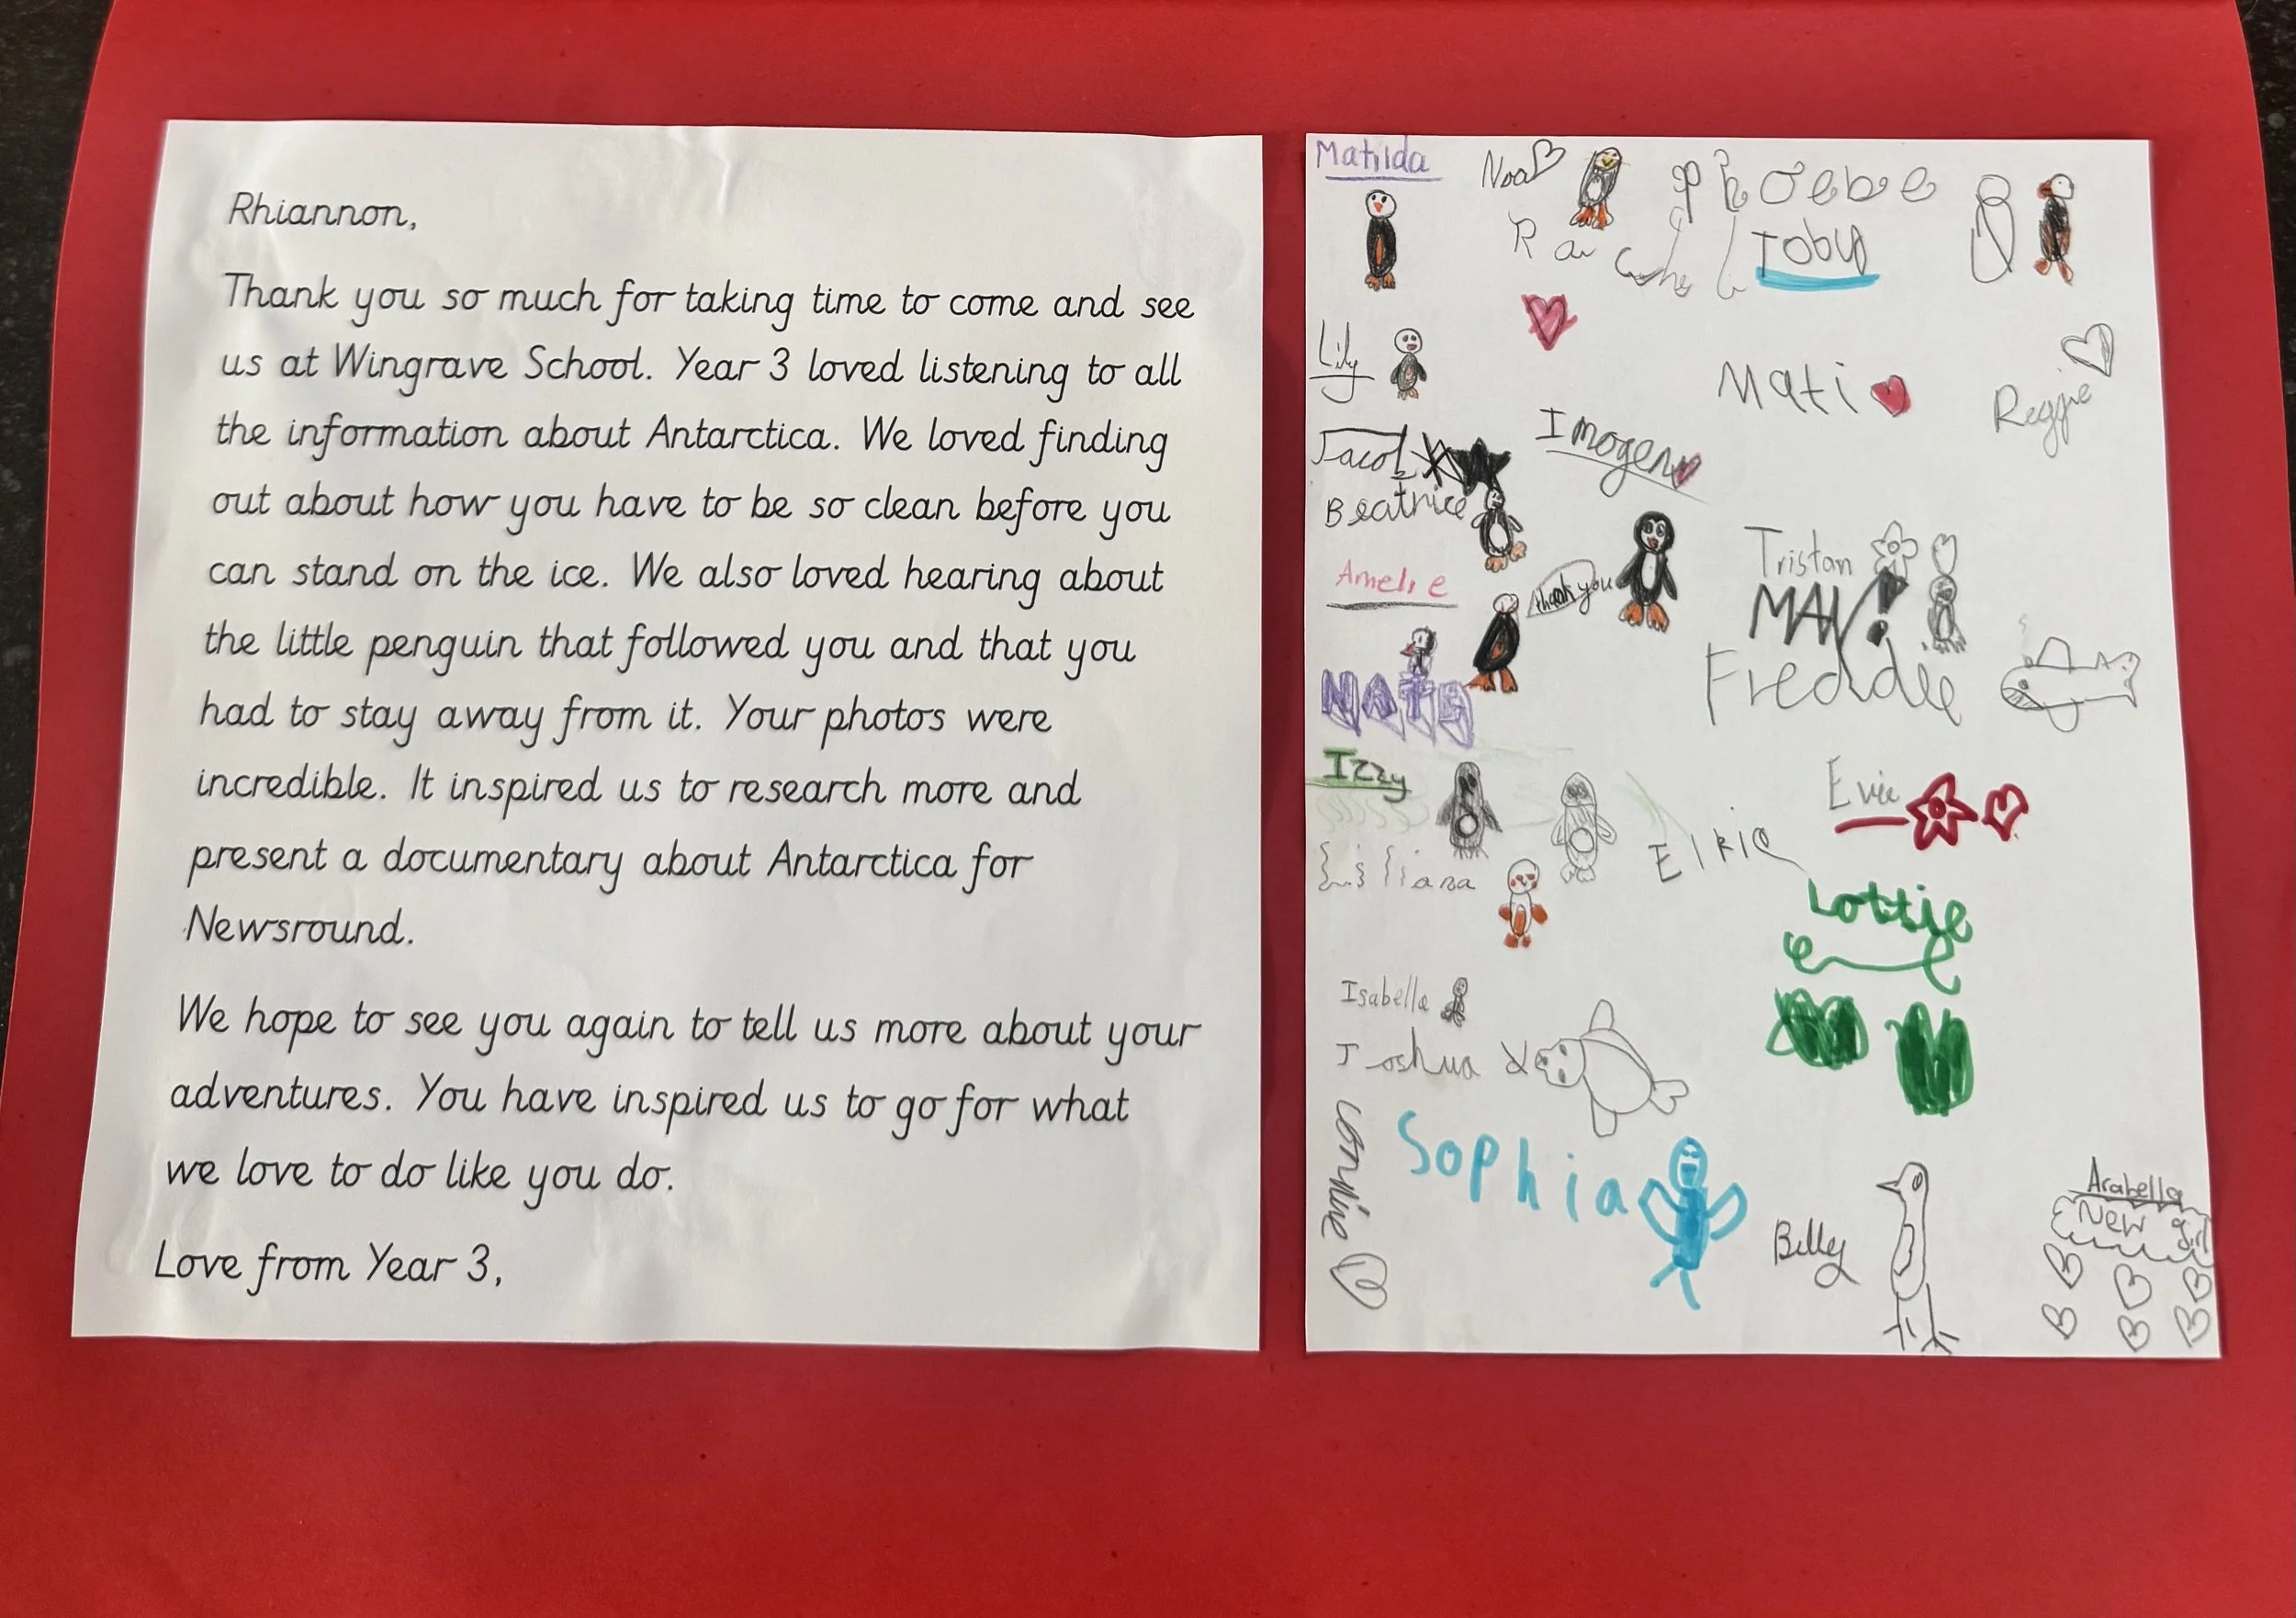 Rhiannon,
Thank you so much for taking time to come and see
us at Wingrave School. Year 3 loved listening to all
the information about Antarctica. We loved finding
out about how you have to be so clean before you
can stand on the ice. We also loved hearing about
the little penguin that followed you and that you
had to stay away from it. Your photos were
incredible. It inspired us to research more and
present a documentary about Antarctica for
Newsround.
We hope to see you again to tell us more about your
adventures. You have inspired us to go for what
we love to do like you do.
Love from Year 3,
Matilda
Noa
Phoebe
Toby
Lily
Mati
Reggie
Jacob
Imogen
Beatrice
Tristan
Amelie
thank you
MAX!
Freddie
NATE
Izzy
Evie
Elkie
Lottie
Isabella
Joshua
Connie
Sophia
Billy
Arabella
New girl